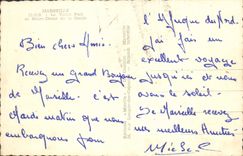 MARSEILLE
Bien chers Amis.
Recevez un grand Bonjour
de Marseille. c'est
Mardi matin que nous
embarquons pour
l'Afrique du Nord.
J'ai fais un
excellent voyage
jusqu'ici et nous
avons le soleil.
De Marseille recevez
mes meilleures Amitiés
Michel